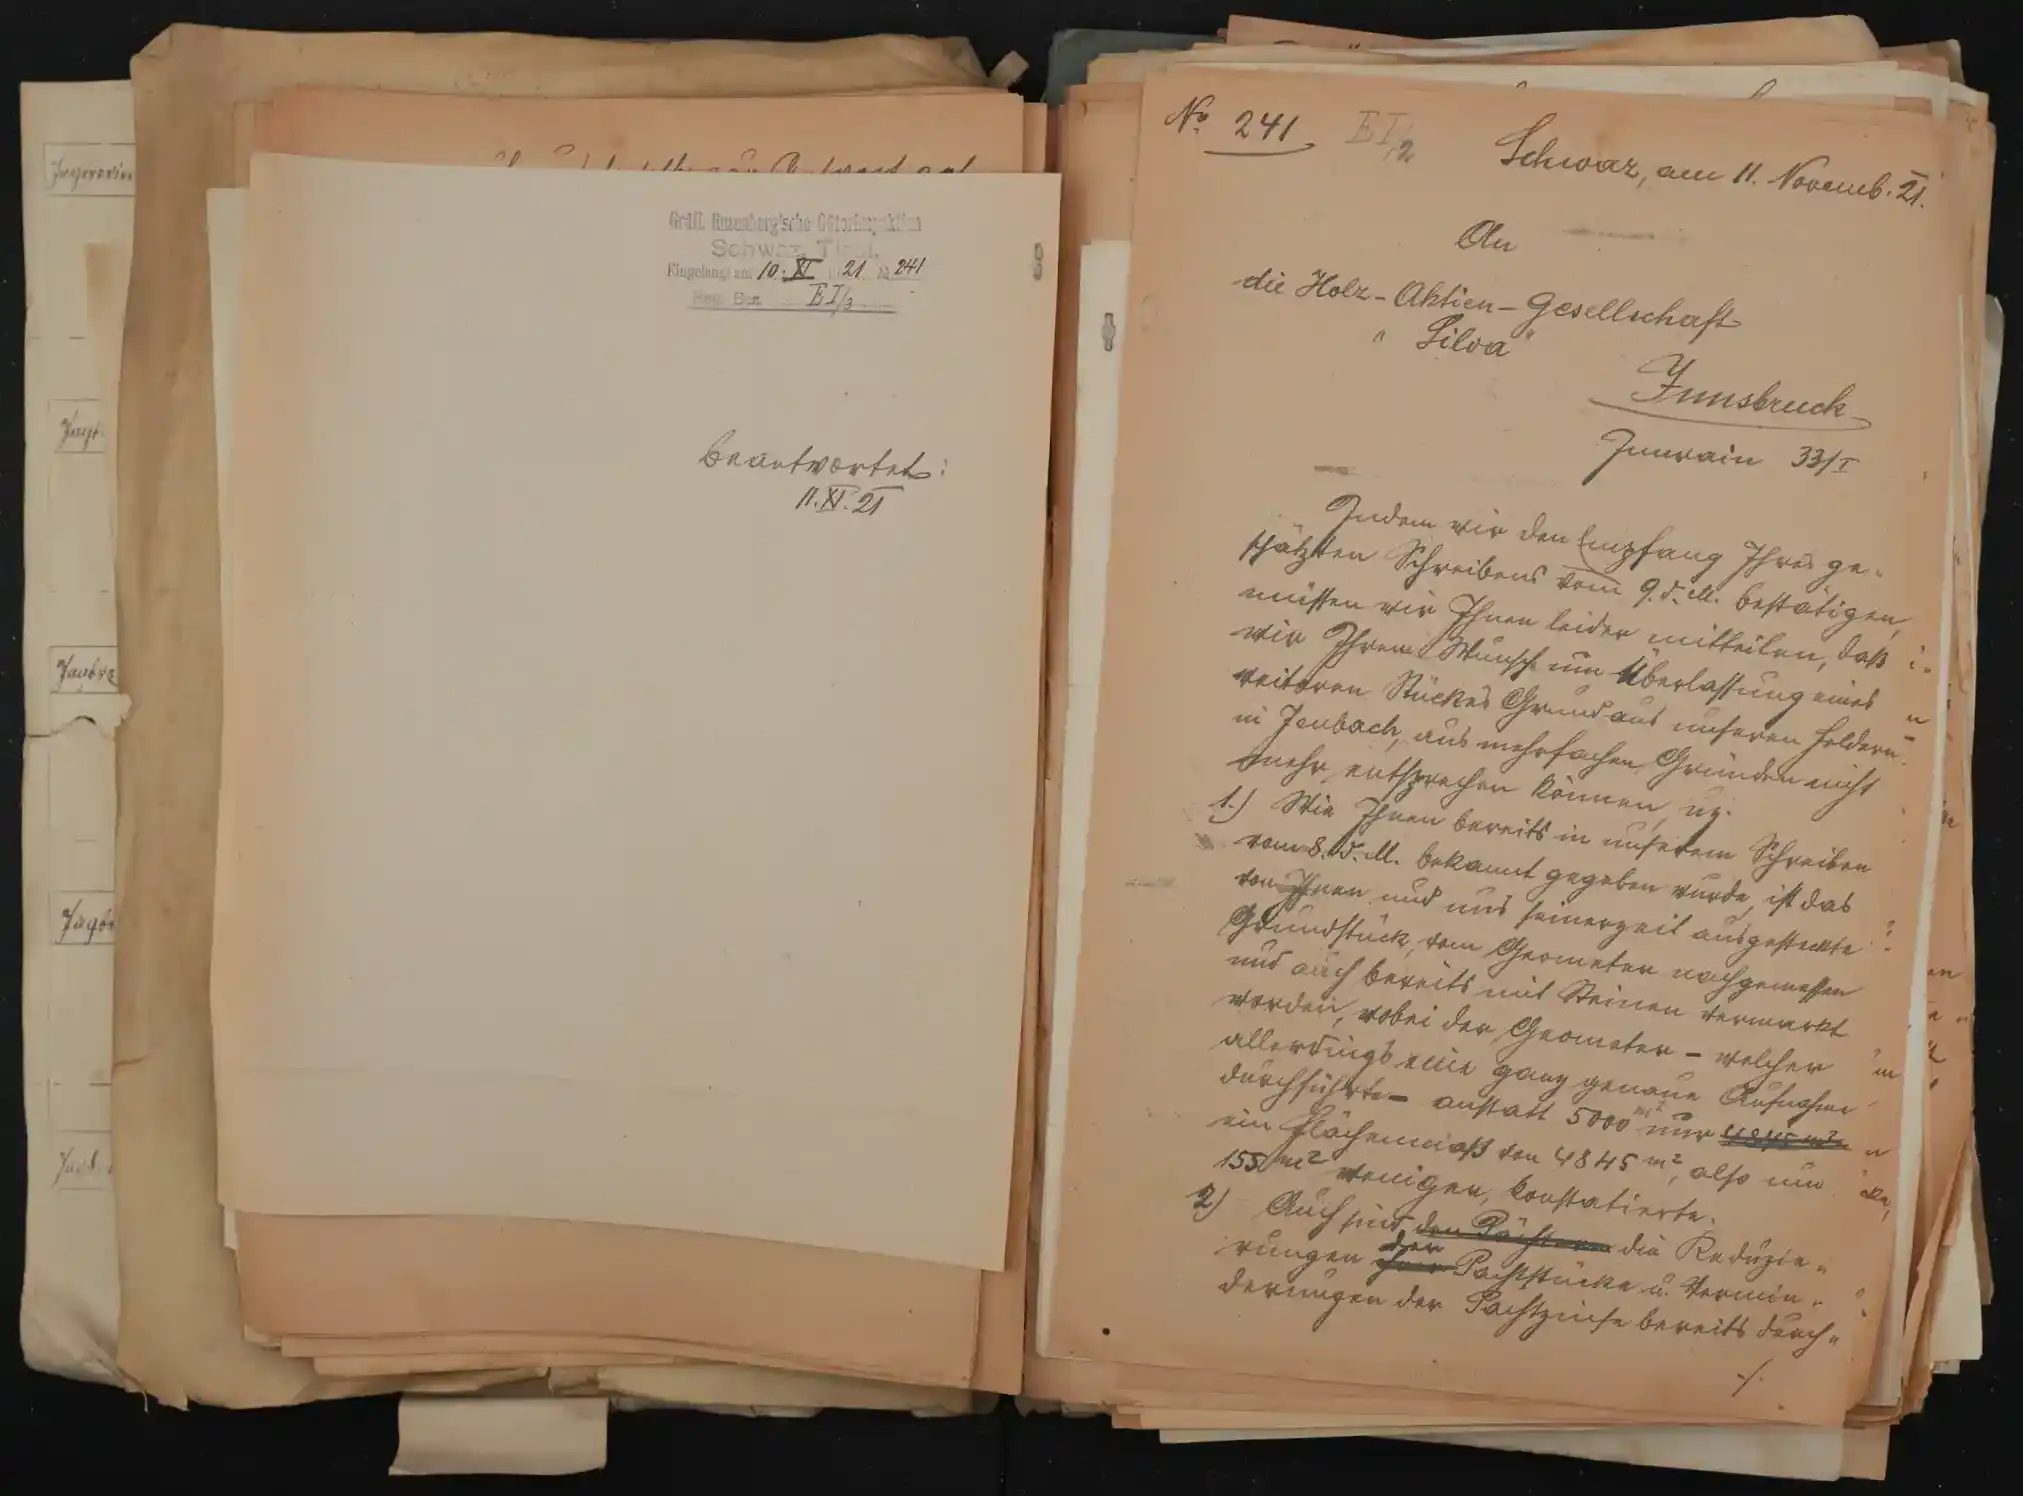 Gräfl. Enzenberg'sche Güterinspektion
Schwaz, Tirol.
Eingelangt am 10. XI 21 № 241
Reg. Bez. E I/3
beantwortet:
11. XI. 21
№ 241 E I/2
Schwaz, am 11. Novemb. 21.
An
die Holz-Aktien-Gesellschaft
"Silva"
Innsbruck
Innrain 33/I
Indem wir den Empfang Ihres ge-
schätzten Schreibens vom 9. d. M. bestätigen,
müssen wir Ihnen leider mitteilen, daß
wir Ihrem Wunsch um Überlassung eines
weiteren Stückes Grund aus unseren Feldern
in Jenbach, aus mehrfachen Gründen nicht
mehr entsprechen können, uz.
1.) Wie Ihnen bereits in unserem Schreiben
vom 8. d. M. bekannt gegeben wurde, ist das
von Ihnen und uns seinerzeit ausgesteckte
Grundstück, vom Geometer nachgemessen
und auch bereits mit Steinen vermarkt
worden, wobei der Geometer – welcher
allerdings eine ganz genaue Aufnahme
durchführte – anstatt 5000 m² nur 4845 m²
ein Flächenmaß von 4845 m², also um
155 m² weniger, konstatierte.
2) Auch sind den Pächtern die Reduzie-
rungen der Pachtstücke u. Vermin-
derungen der Pachtzinse bereits durch-
./.